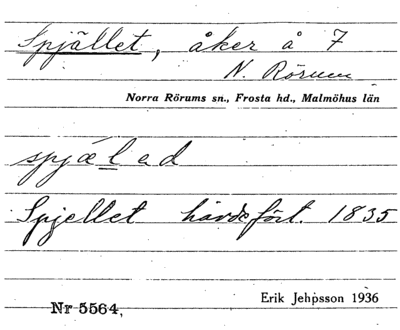 Spjället, åker å 7
N. Rörum
Norra Rörums sn., Frosta hd., Malmöhus län
spjæled
Spjellet hävdefört. 1835
Nr 5564,
Erik Jehpsson 1936